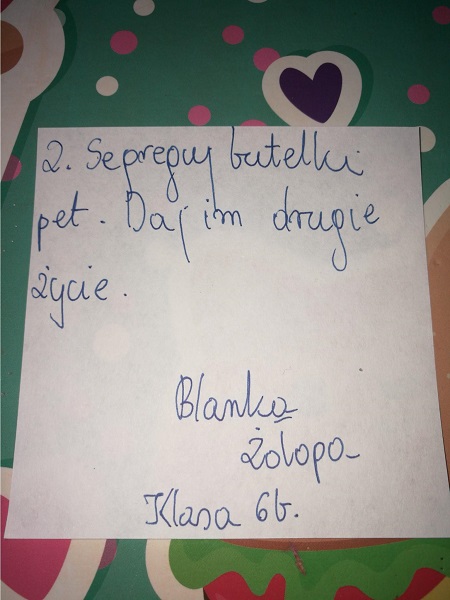 2. Sepreguj butelki
pet. Daj im drugie
życie.
Blanka
Żołopa
Klasa 6b.